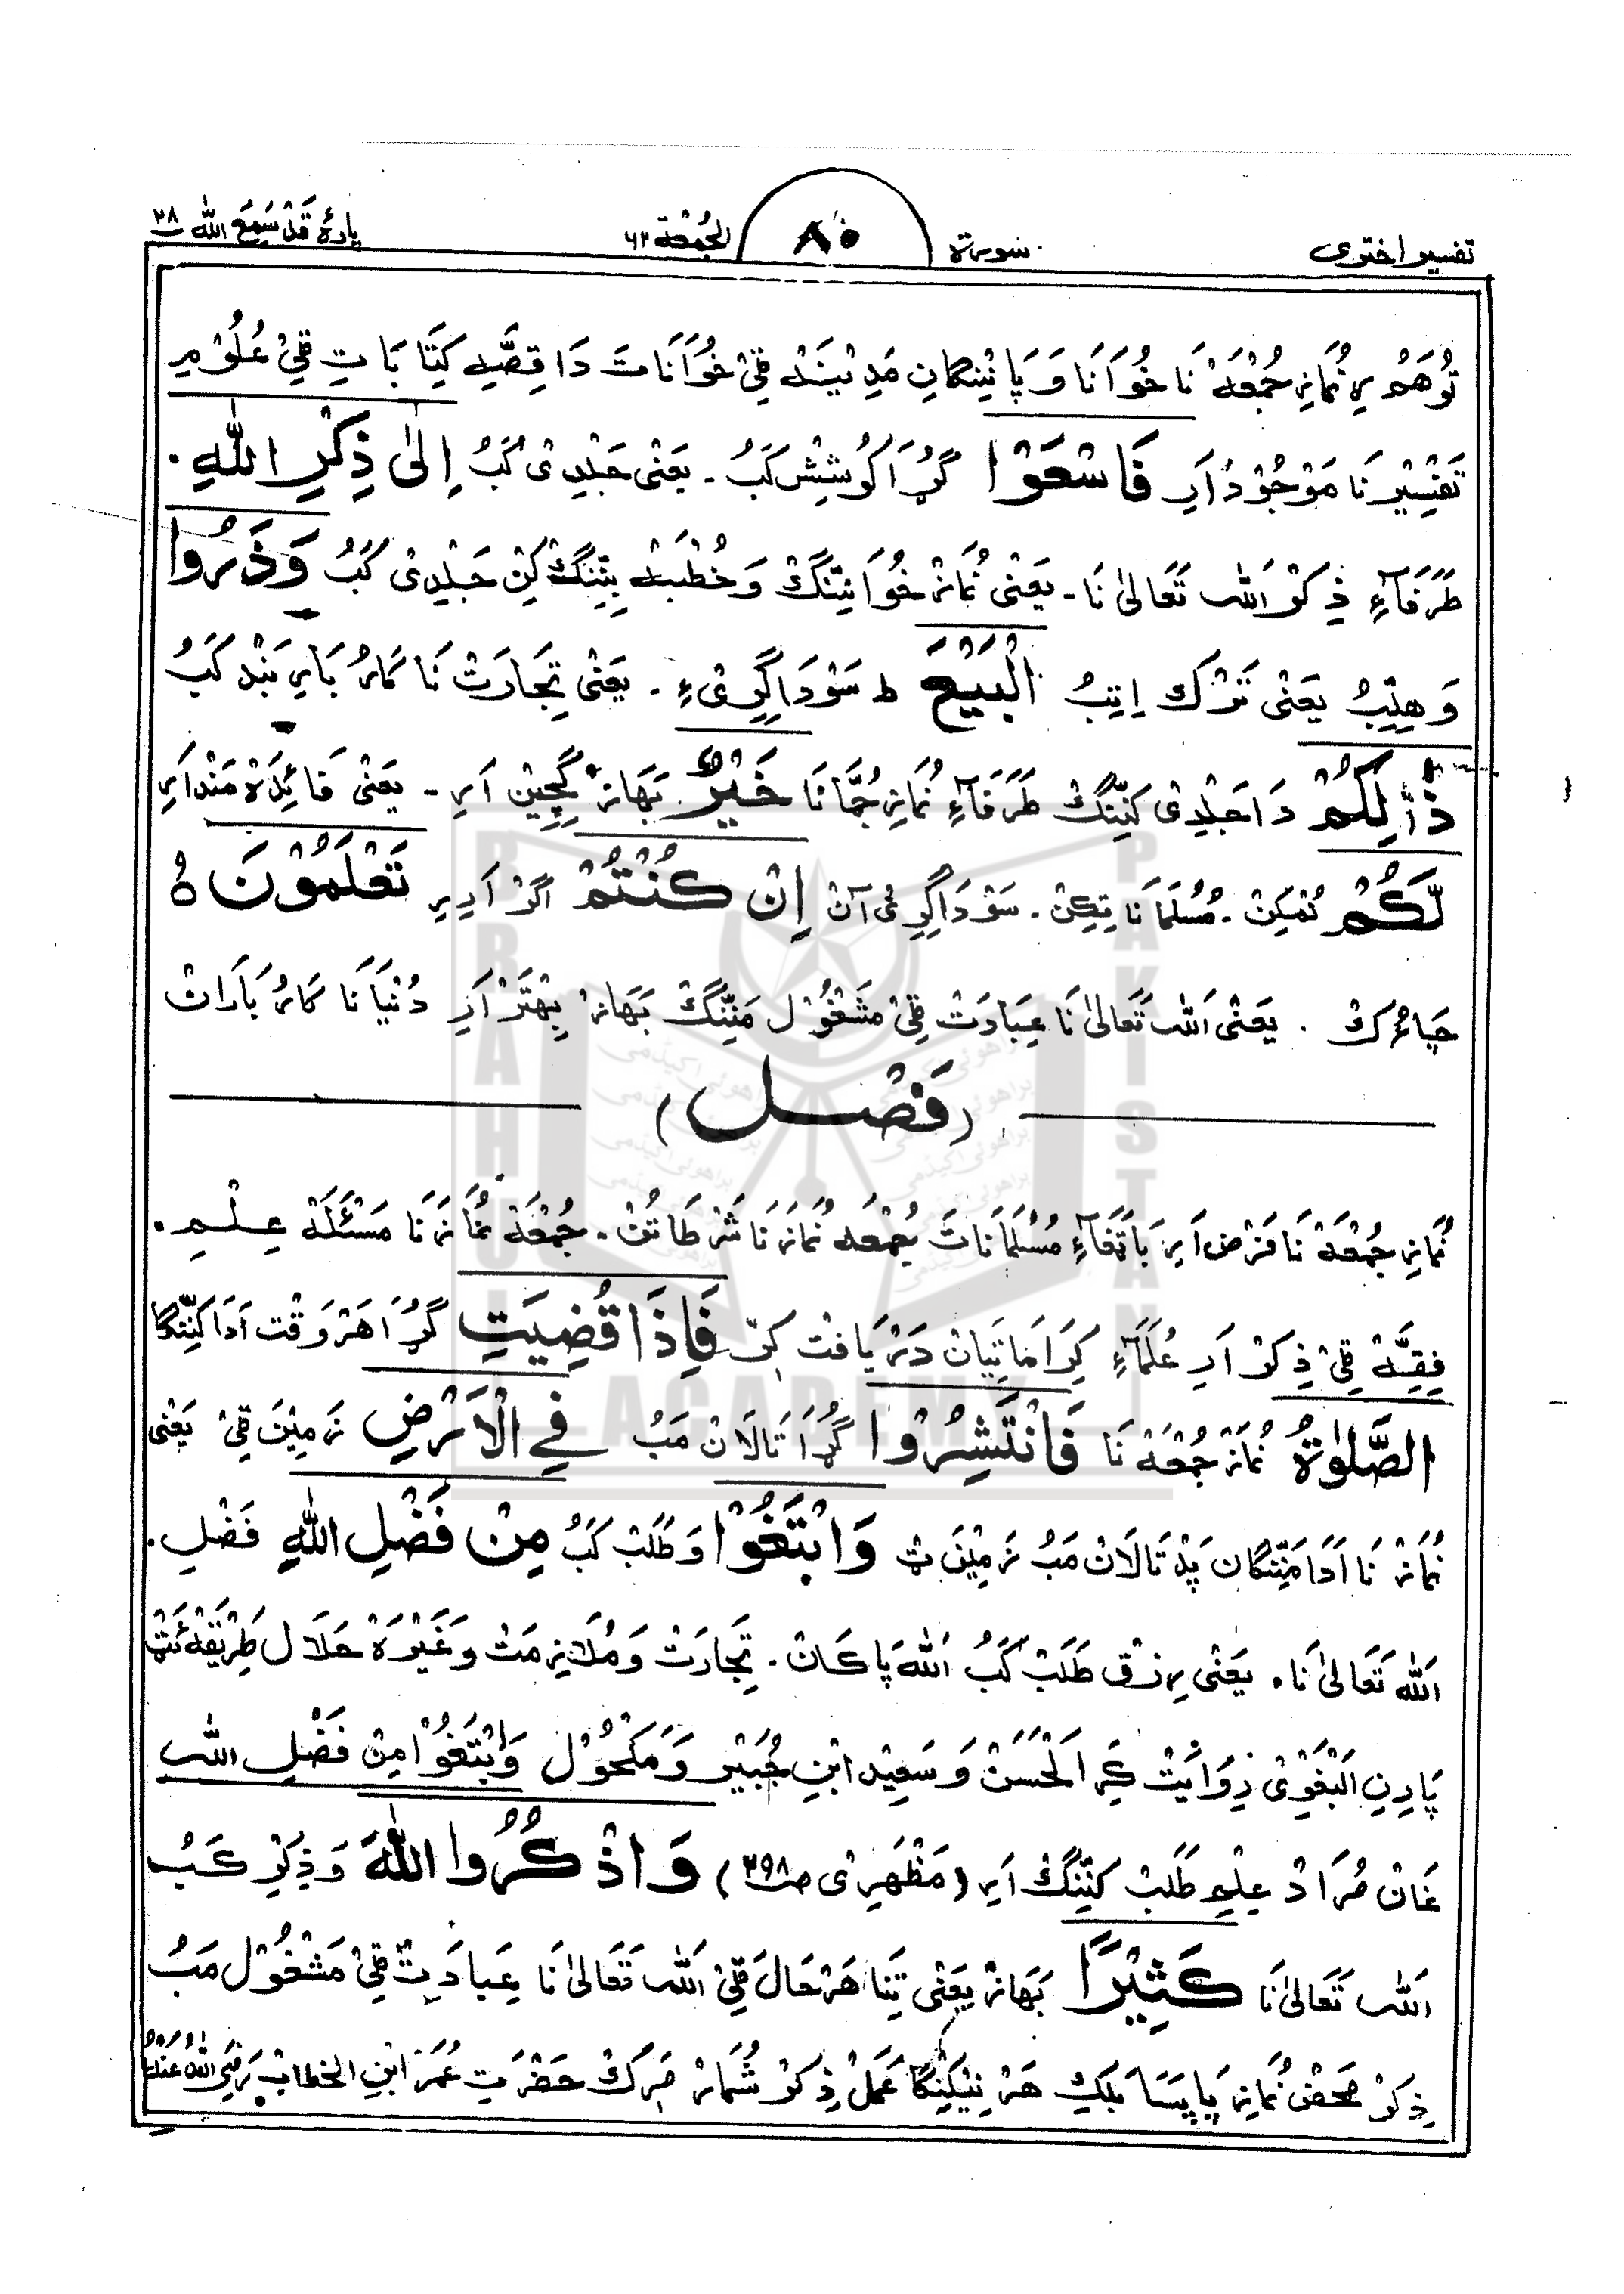 تفسیر اختری
سورۃ
۸۰
الجُمْعَة ۶۲
پارۂ قَدْ سَمِعَ الله ۲۸
تُوهَمُ نُمَازِ جُمْعَهْ نَا خُوَانَا وَ پَانِنِگانِ مَدِيْنَه ٹِیْ خُوَانَاتَ دَا قِصَّہ کِتَابَاتِ ٹِیْ عُلُوْمِ
تَفْسِيْرنَا مَوْجُوْد اَرِ فَاسْعَوْا گُڑَا کُوشِشْ کَبُ ۔ یَعْنٰی جَلْدِیْ کَبُ اِلٰی ذِکْرِ اللهِ ۔
طَرَفَآءِ ذِکْر اَللہ تَعَالیٰ نَا ۔ یَعْنٰی نُمَازْ خُوَانِنِّگْ وَ خُطْبَہ بِنِّنِگْ کِنْ جَلْدِیْ کَبُ وَذَرُوا
وَ هِلِّبُ یَعْنٰی تَرْک اِتِبُ الْبَيْعَ ط سَوْدَاگِرِیْءِ ۔ یَعْنٰی تِجَارَتْ نَا کَارُ بَارِ بَنْد کَبُ
ذٰلِكُمْ دَا جَلْدِی کَنِّنِگْ طَرَفَآءِ نُمَازِ جُمَّانَا خَيْرٌ بَهَازْ گِچِيْن اَرِ ۔ یَعْنٰی فَائِدَهْ مَنْد اَرِ
لَّكُمْ نُمْکِنْ ۔ مُسُلمَانَا تِکِنْ ۔ سَوْدَاگِرِیْ آنْ اِنْ كُنْتُمْ اَگَرْ اَدِیرِ تَعْلَمُوْنَ ہ
چَاءِرِکْ ۔ یَعْنٰی اَللہ تَعَالیٰ نَا عِبَادَتْ ٹِیْ مَشْغُوْل مَنِّنگْ بَهَازْ بِهْتَرْ اَرِ دُنْيَا نَا کَارُ بَارَانْ
(فَصْل)
نُمَازِ جُمْعَهْ نَا فَرْض اَرِ بَاتَفَآءِ مُسُلمَانَاتَ جُمْعَه نُمَازَنَا شَرْطَاتَتْ ۔ جُمْعَهْ نُمَازَنَا مَسْئَلَهْ عِلْمِ ۔
فِقِهَّ ٹِیْ ذِکَرْ اَرِ عُلَمَآءِ کِرَامَاتِيَانْ دَرْیَافْت کِرّ فَاِذَا قُضِيَتِ گُڑَا هَرْوَقْت اَدَا کَنِّنگَا
الصَّلٰوةُ نُمَازْ جُمْعَهْ نَا فَانْتَشِرُوْا گُڑَا تَالَانْ مَبُ فِي الْاَرْضِ زَمِيْنَ ٹِیْ یَعْنٰی
نُمَازْ نَا اَدَا مَنِّنگَانْ پَدْ تَالَانْ مَبُ زَمِيْنَ ٹ وَابْتَغُوْا وَ طَلَبْ کَبُ مِنْ فَضْلِ اللهِ فَضْلِ ۔
اَللہ تَعَالیٰ نَا ۔ یَعْنٰی رِزْق طَلَبْ کَبُ اَللهَ پَاکَانْ ۔ تِجَارَتْ وَ مُلَازِمَتْ وَغَیْرَهْ حَلَال طَرِيْقَه ئَٹْ
پَادِنِ الْبَغْوِیْ رِوَايَتْ کِرِ الْحَسَنْ وَ سَعِيْد ابْنِ جُبَيْر وَ مَکْحُوْل وَابْتَغُوْا مِنْ فَضْلِ اللہ
غَانْ مُرَادْ عِلْمِ طَلَبْ کَنِّنگْ اَرِ (مَظْهَرِیْ صـ ۳۹۸) وَاذْكُرُوا اللهَ وَ ذِکْرِ کَبُ
اَللہ تَعَالیٰ نَا كَثِيْرًا بَهَازْ یَعْنٰی تِنَا هَرْحَالَ ٹِیْ اَللہ تَعَالیٰ نَا عِبَادَتْ ٹِیْ مَشْغُوْل مَبُ
ذِکَرْ مَحَض نُمَازِ پَاپِسَا بَلْکِ هَرْ نِیْکِنگَا عَمَلْ ذِکَرْ شُمَارْ مَرِکْ حَضْرَتِ عُمَرَ ابْنِ الخطابْ رَضِيَ اللهُ عَنْهُ